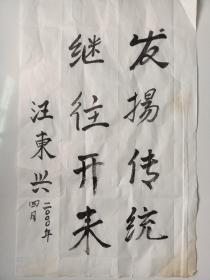 发揚传统
继往开来
汪東兴
二〇〇〇年
四月